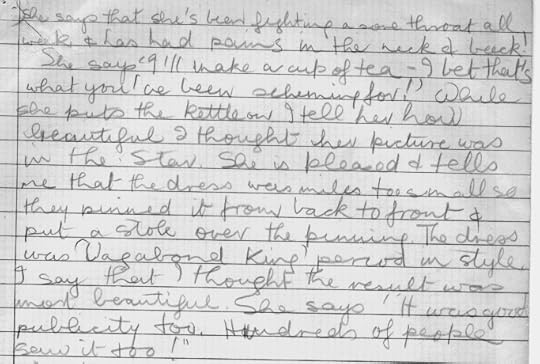 She says that she's been fighting a sore throat all
week & has had pains in the neck & back.
She says "I'll make a cup of tea - I bet that's
what you've been scheming for!" While
she puts the kettle on I tell her how
beautiful I thought her picture was
in the Star. She is pleased & tells
me that the dress was miles too small so
they pinned it from back to front &
put a stole over the pinning. The dress
was 'Vagabond King' period in style.
I say that I thought the result was
most beautiful. She says "It was good
publicity too. Hundreds of people
saw it too!"